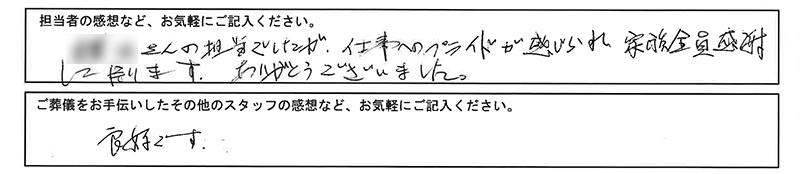 担当者の感想など、お気軽にご記入ください。
さんの担当でしたが、仕事へのプライドが感じられ、家族全員感謝
して居ります。ありがとうございました。
ご葬儀をお手伝いしたその他のスタッフの感想など、お気軽にご記入ください。
良好です。